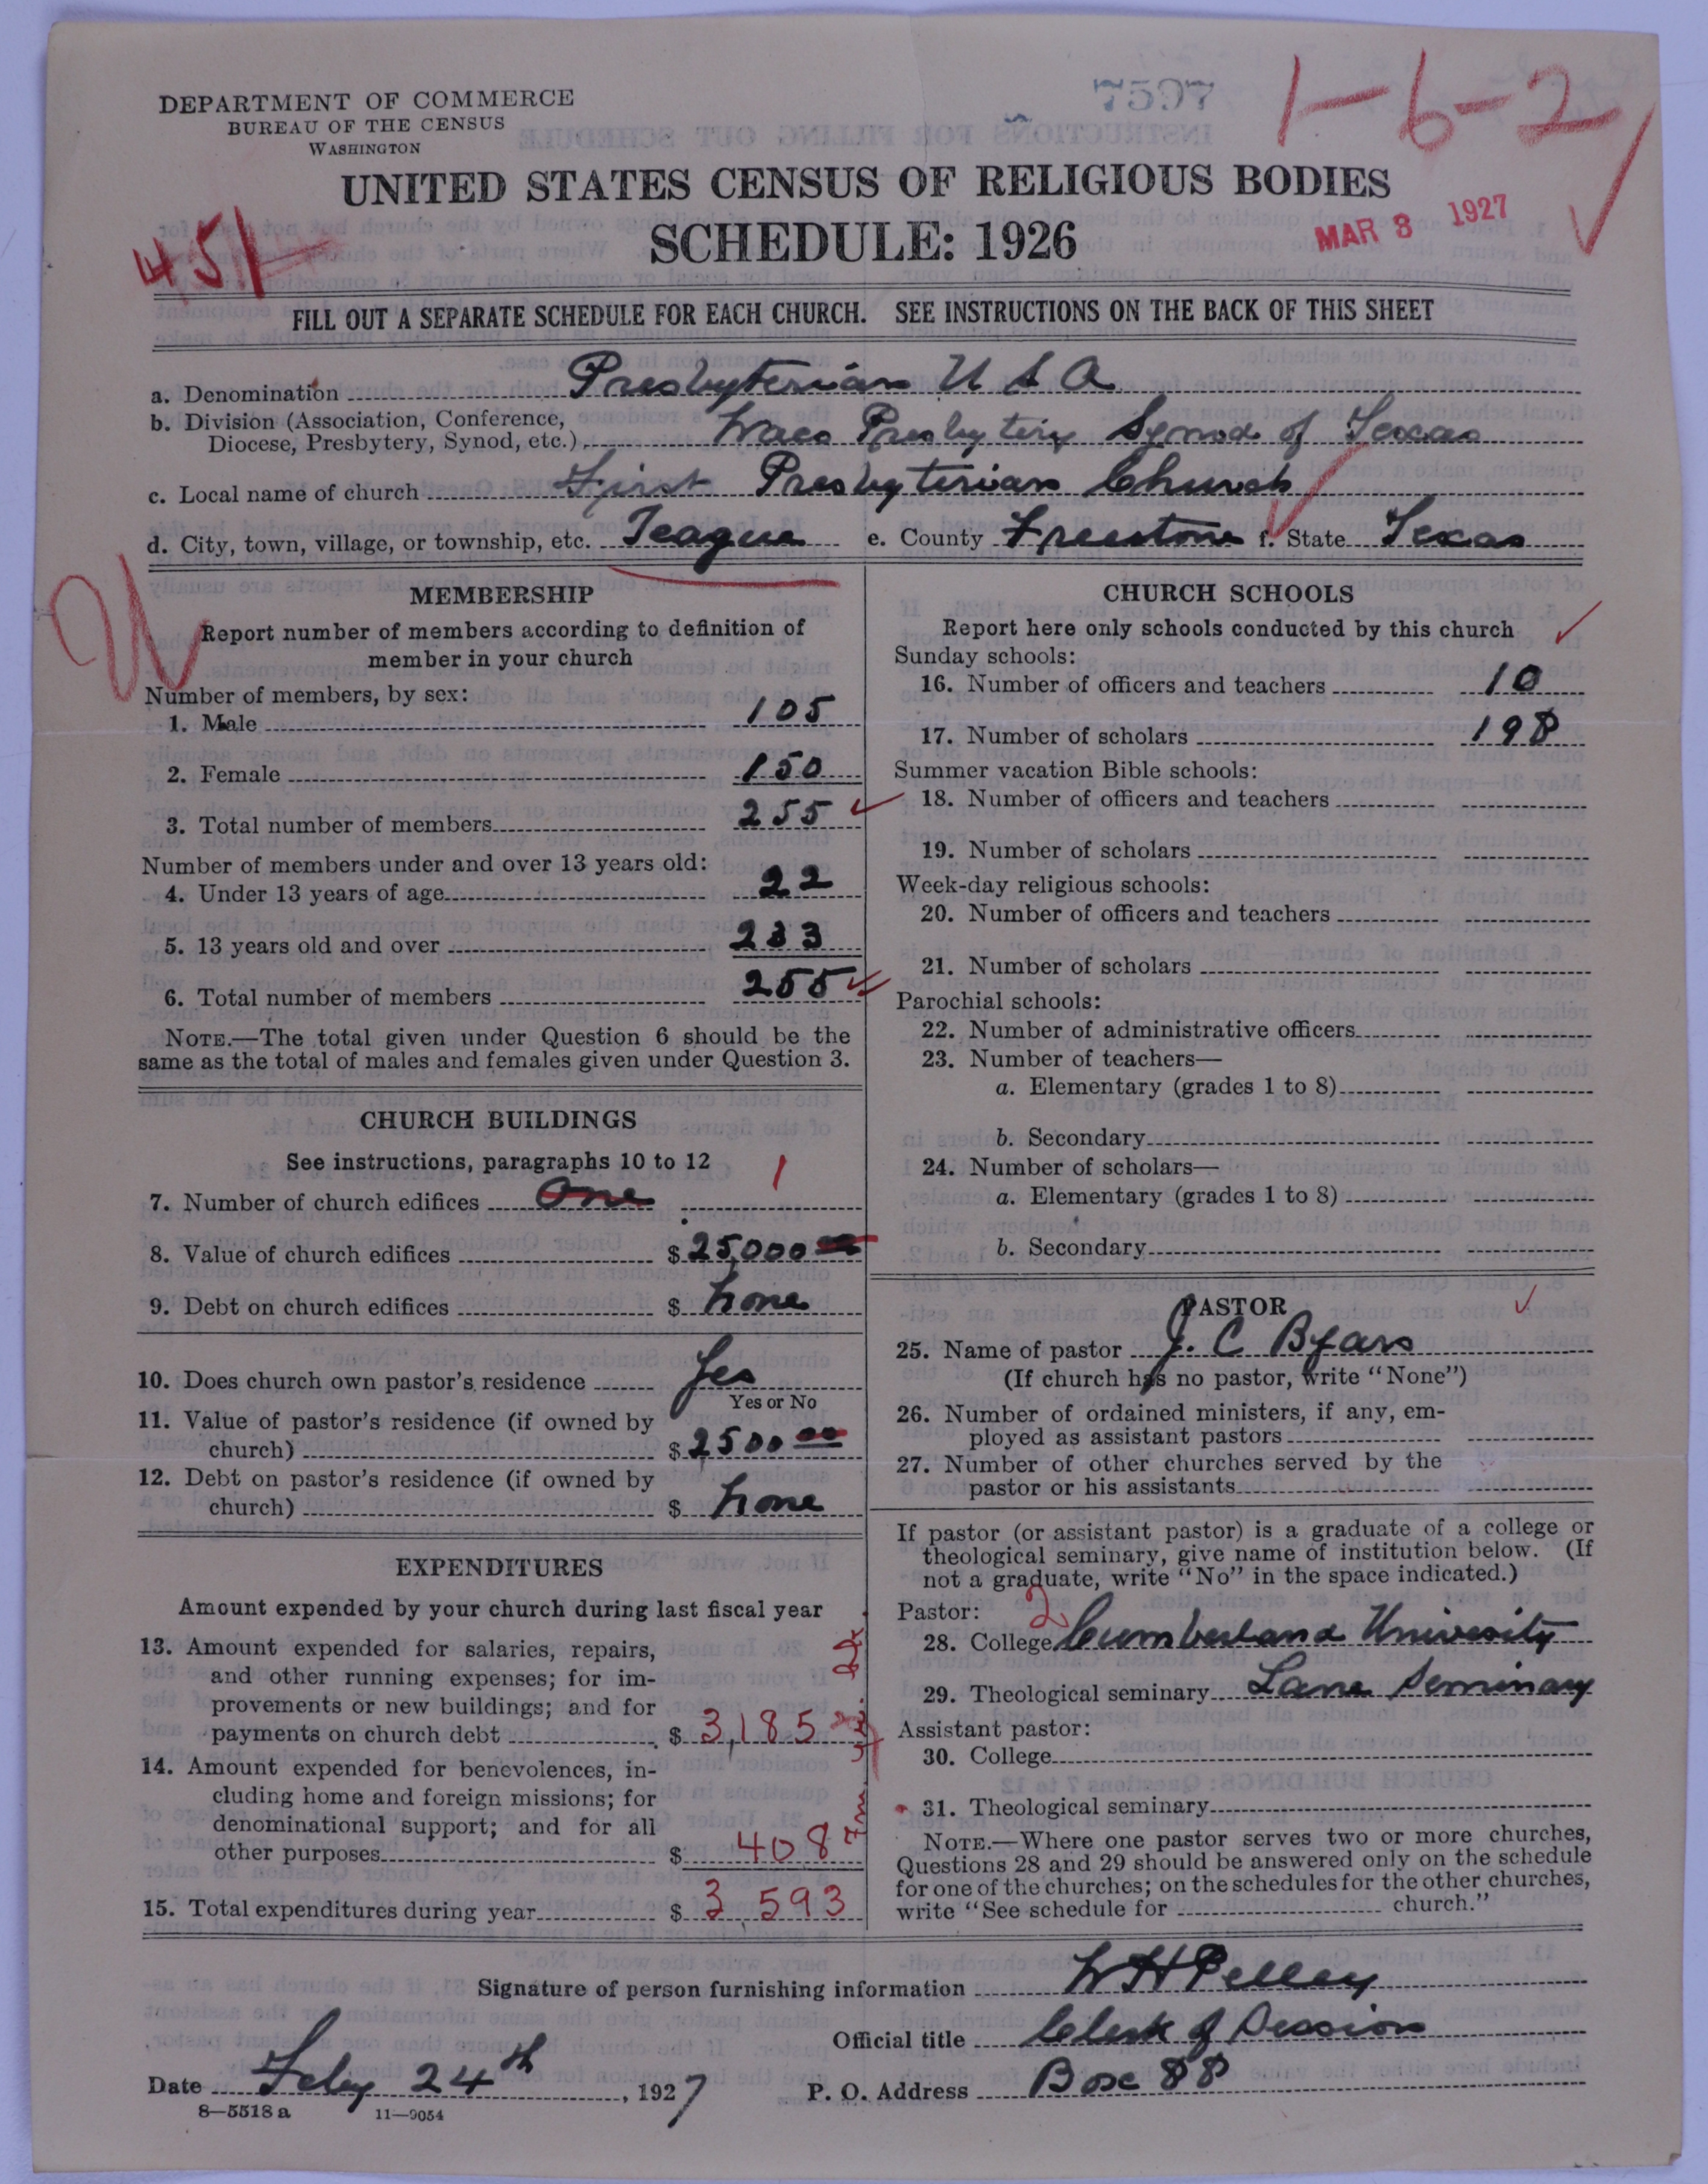 DEPARTMENT OF COMMERCE
BUREAU OF THE CENSUS
WASHINGTON
7597
1-6-2
UNITED STATES CENSUS OF RELIGIOUS BODIES
SCHEDULE: 1926
451
MAR 8 1927
FILL OUT A SEPARATE SCHEDULE FOR EACH CHURCH. SEE INSTRUCTIONS ON THE BACK OF THIS SHEET
a. Denomination Presbyterian U S A
b. Division (Association, Conference,
Diocese, Presbytery, Synod, etc.) Waco Presbytery Synod of Texas
c. Local name of church First Presbyterian Church
d. City, town, village, or township, etc. Teague e. County Freestone f. State Texas
MEMBERSHIP
Report number of members according to definition of
member in your church
Number of members, by sex:
1. Male 105
2. Female 150
3. Total number of members 255
Number of members under and over 13 years old:
4. Under 13 years of age 22
5. 13 years old and over 233
6. Total number of members 255
NOTE.—The total given under Question 6 should be the
same as the total of males and females given under Question 3.
CHURCH BUILDINGS
See instructions, paragraphs 10 to 12
7. Number of church edifices One 1
8. Value of church edifices $25,000 00
9. Debt on church edifices $ none
10. Does church own pastor's residence Yes
Yes or No
11. Value of pastor's residence (if owned by
church) $2500 00
12. Debt on pastor's residence (if owned by
church) $ none
EXPENDITURES
Amount expended by your church during last fiscal year
13. Amount expended for salaries, repairs,
and other running expenses; for im-
provements or new buildings; and for
payments on church debt $ 3,185
14. Amount expended for benevolences, in-
cluding home and foreign missions; for
denominational support; and for all
other purposes $ 408
15. Total expenditures during year $ 3 593
CHURCH SCHOOLS
Report here only schools conducted by this church
Sunday schools:
16. Number of officers and teachers 10
17. Number of scholars 198
Summer vacation Bible schools:
18. Number of officers and teachers
19. Number of scholars
Week-day religious schools:
20. Number of officers and teachers
21. Number of scholars
Parochial schools:
22. Number of administrative officers
23. Number of teachers—
a. Elementary (grades 1 to 8)
b. Secondary
24. Number of scholars—
a. Elementary (grades 1 to 8)
b. Secondary
PASTOR
25. Name of pastor J. C Byars
(If church has no pastor, write "None")
26. Number of ordained ministers, if any, em-
ployed as assistant pastors
27. Number of other churches served by the
pastor or his assistants
If pastor (or assistant pastor) is a graduate of a college or
theological seminary, give name of institution below. (If
not a graduate, write "No" in the space indicated.)
Pastor: 2
28. College Cumberland University
29. Theological seminary Lane Seminary
Assistant pastor:
30. College
31. Theological seminary
NOTE.—Where one pastor serves two or more churches,
Questions 28 and 29 should be answered only on the schedule
for one of the churches; on the schedules for the other churches,
write "See schedule for church."
Signature of person furnishing information W H Pelley
Official title Clerk of Session
Date Feby 24th, 1927 P. O. Address Box 88
8—5518 a 11—9054